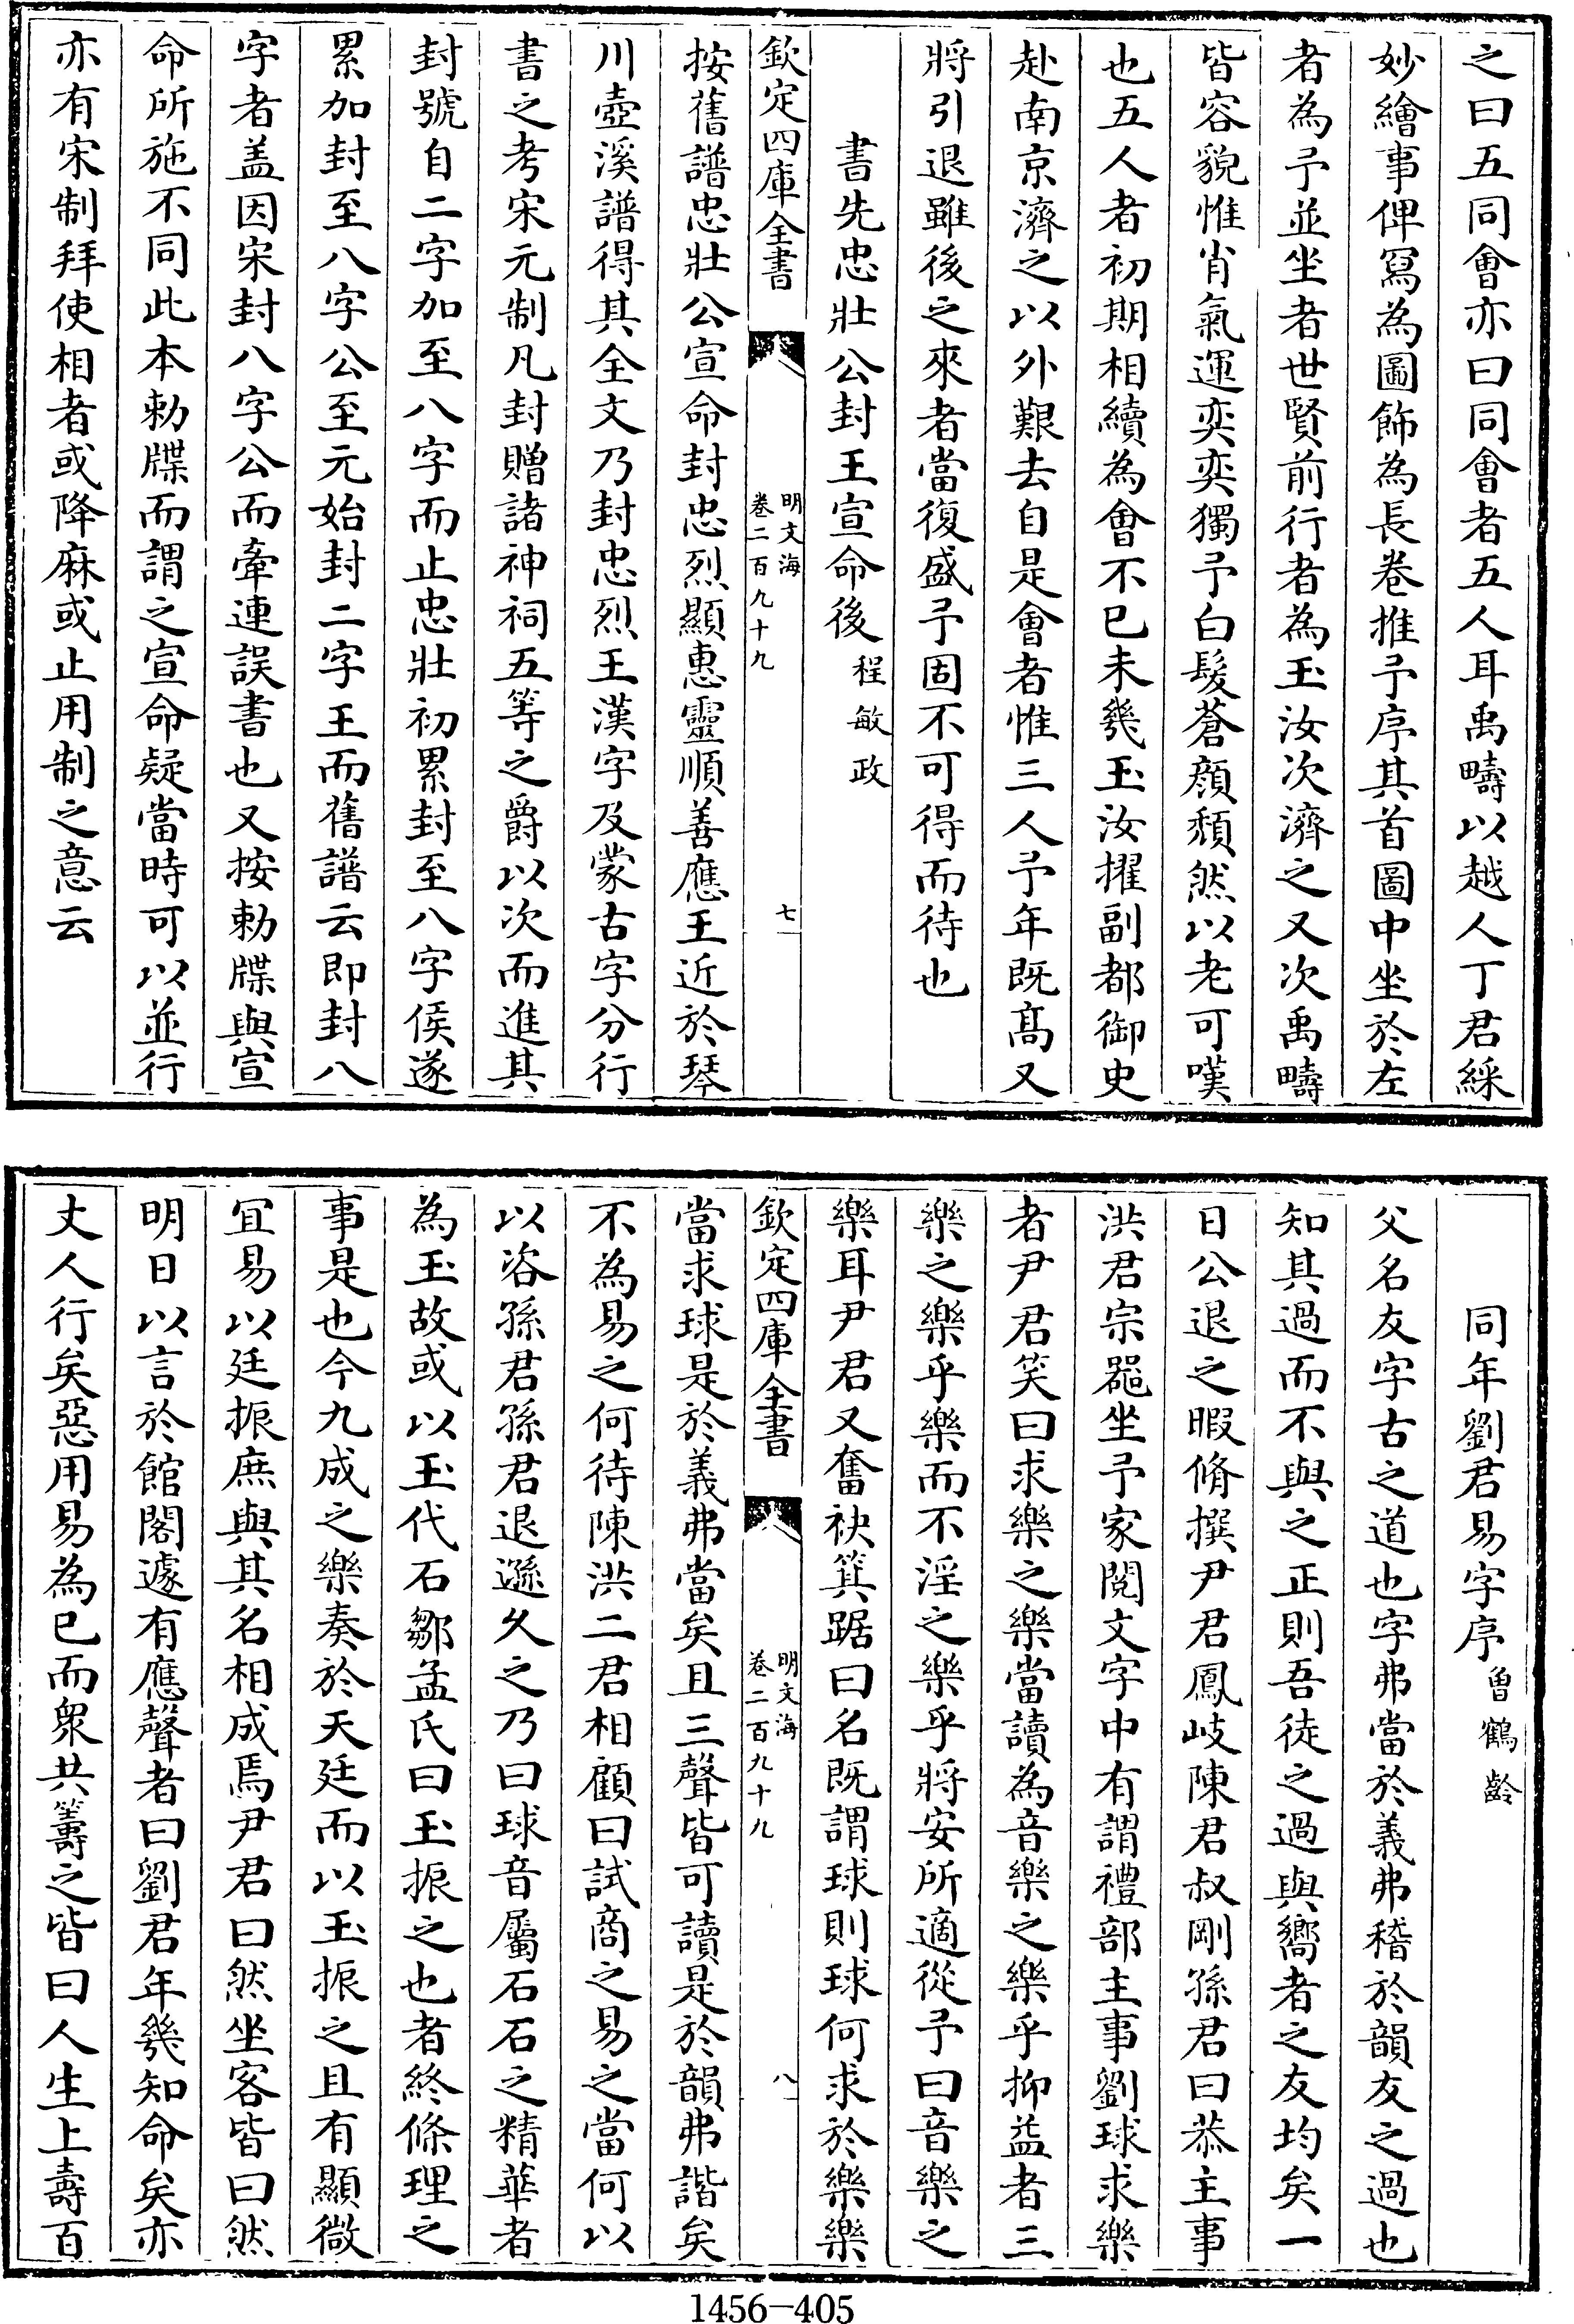 之曰五同會亦曰同會者五人耳禹疇以越人丁君綵
妙繪事俾寫為圖飾為長卷推予序其首圖中坐於左
者為予並坐者世賢前行者為玉汝次濟之又次禹疇
皆容貌惟肖氣運奕奕獨予白髮蒼顔頽然以老可嘆
也五人者初期相續為會不已未幾玉汝擢副都御史
赴南京濟之以外艱去自是會者惟三人予年既髙又
將引退雖後之來者當復盛予固不可得而待也
書先忠壯公封王宣命後 程敏政
欽定四庫全書
明文海
卷二百九十九
七
按舊譜忠壯公宣命封忠烈顯惠靈順善應王近於琴
川壺溪譜得其全文乃封忠烈王漢字及蒙古字分行
書之考宋元制凡封贈諸神祠五等之爵以次而進其
封號自二字加至八字而止忠壯初累封至八字侯遂
累加封至八字公至元始封二字王而舊譜云即封八
字者盖因宋封八字公而牽連誤書也又按勅牒與宣
命所施不同此本勅牒而謂之宣命疑當時可以並行
亦有宋制拜使相者或降麻或止用制之意云
同年劉君易字序 曾鶴齡
父名友字古之道也字弗當於義弗稽於韻友之過也
知其過而不與之正則吾徒之過與嚮者之友均矣一
日公退之暇脩撰尹君鳳岐陳君叔剛孫君曰恭主事
洪君宗噐坐予家閱文字中有謂禮部主事劉球求樂
者尹君笑曰求樂之樂當讀為音樂之樂乎抑益者三
樂之樂乎樂而不淫之樂乎將安所適從予曰音樂之
樂耳尹君又奮袂箕踞曰名既謂球則球何求於樂樂
欽定四庫全書
明文海
卷二百九十九
八
當求球是於義弗當矣且三聲皆可讀是於韻弗諧矣
不為易之何待陳洪二君相顧曰試商之易之當何以
以咨孫君孫君退遜久之乃曰球音屬石石之精華者
為玉故或以玉代石鄒孟氏曰玉振之也者終條理之
事是也今九成之樂奏於天廷而以玉振之且有顯微
冝易以廷振庶與其名相成焉尹君曰然坐客皆曰然
明日以言於館閣遽有應聲者曰劉君年幾知命矣亦
丈人行矣惡用易為已而衆共籌之皆曰人生上壽百
1456-405